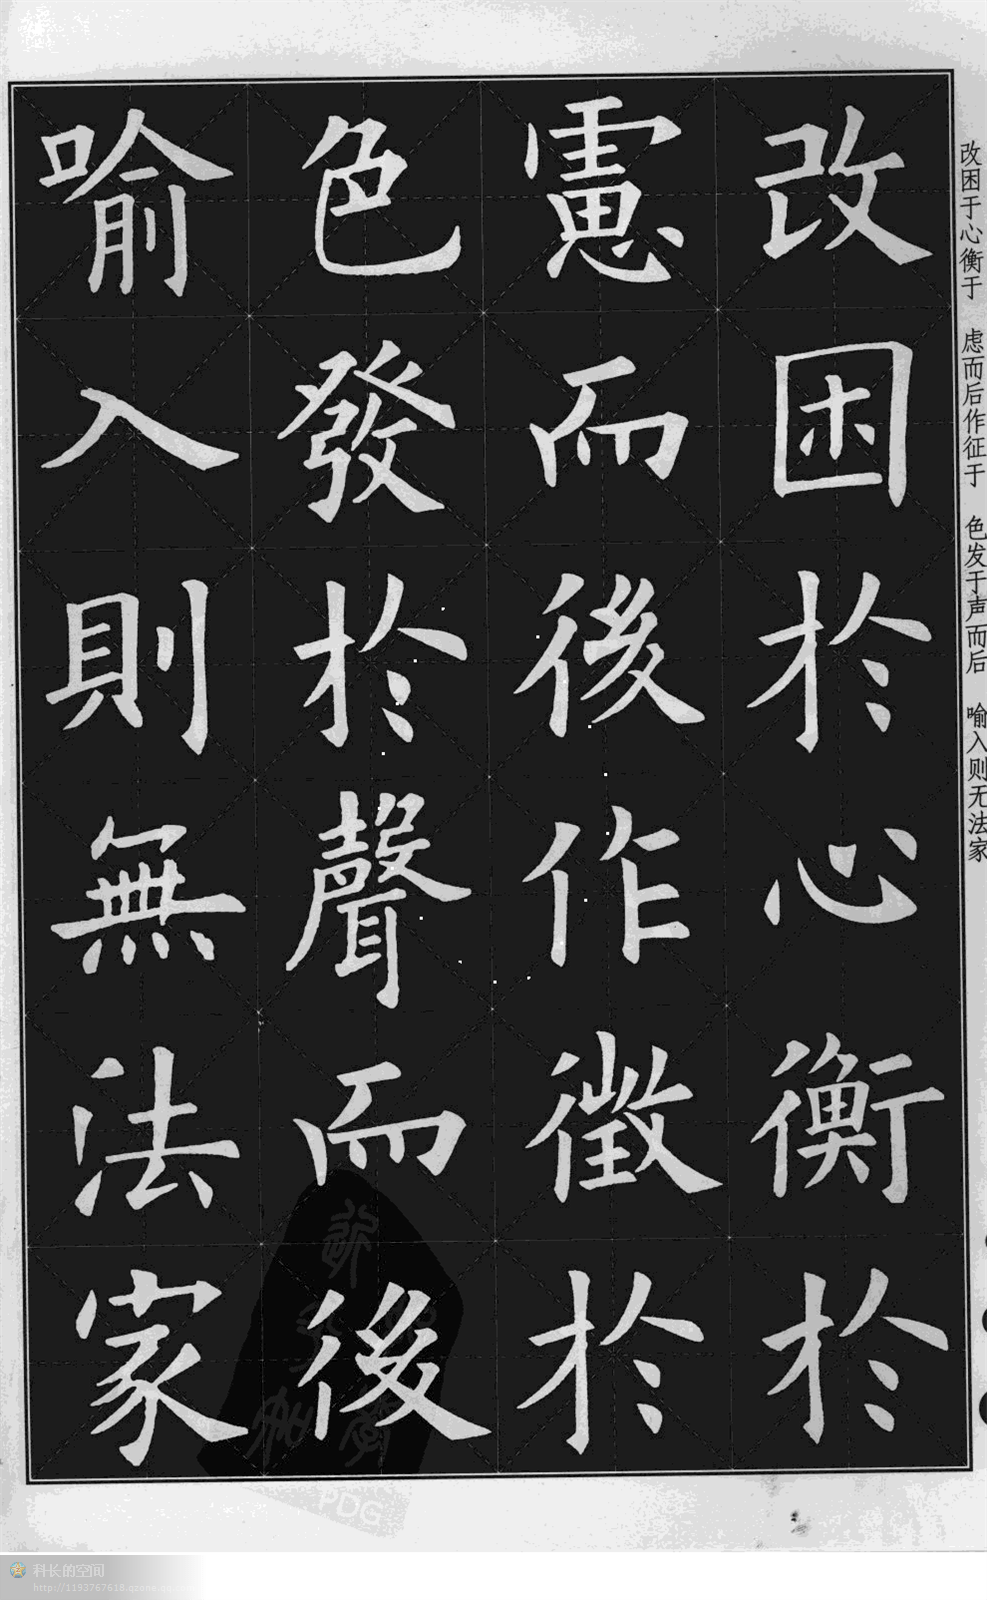 改困於心衡於
慮而後作徵於
色發於聲而後
喻入則無法家
改困于心衡于 虑而后作征于 色发于声而后 喻入则无法家
PDG
科长的空间
http://1193767618.qzone.qq.com